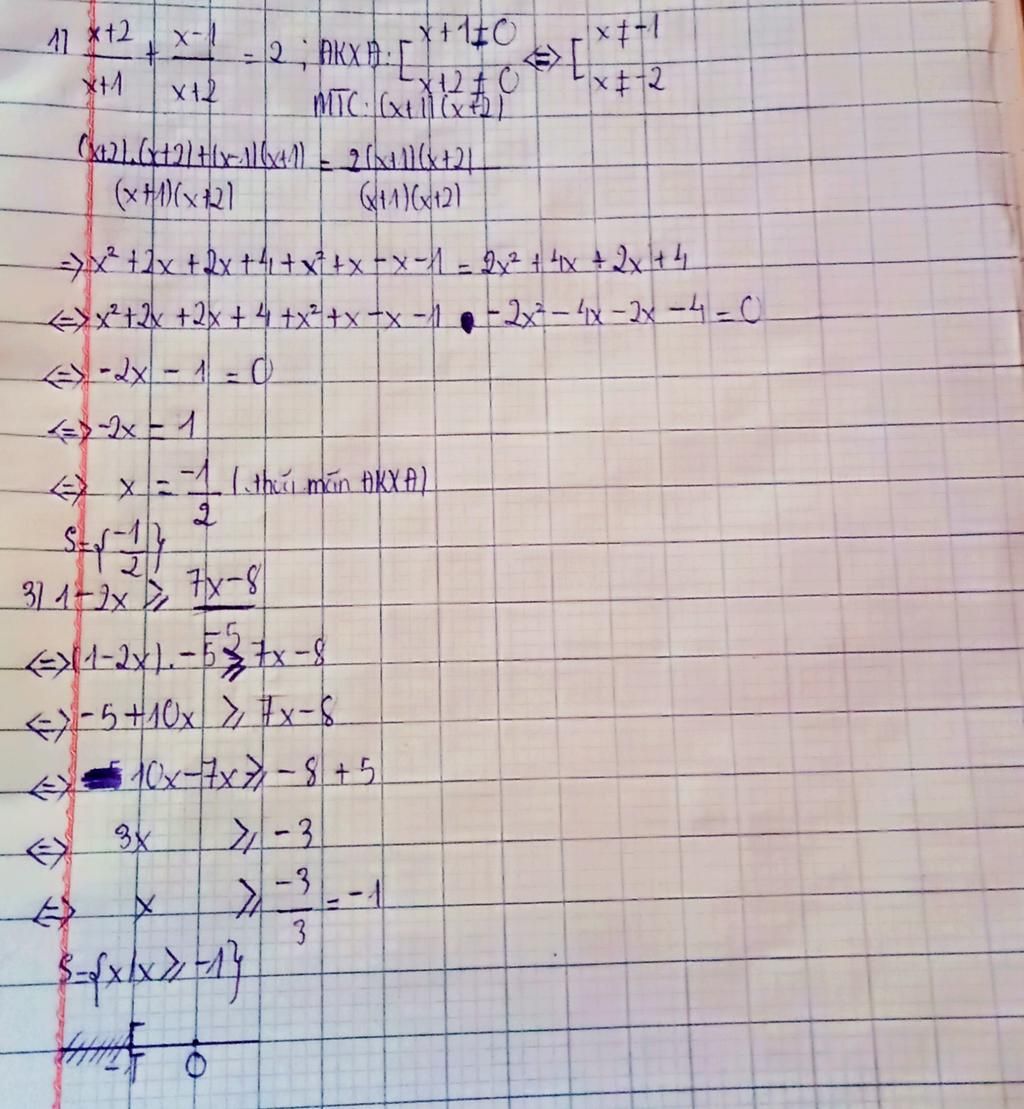 1) x+2/x+1 + x-1/x+2 = 2 ; ĐKXĐ: [ x+1≠0 ⇔ [ x≠-1
x+2≠0 x≠-2
MTC: (x+1)(x+2)
(x+2).(x+2)+(x-1)(x+1)/(x+1)(x+2) = 2(x+1)(x+2)/(x+1)(x+2)
⇒ x²+2x+2x+4+x²+x-x-1=2x²+4x+2x+4
⇔ x²+2x+2x+4+x²+x-x-1 -2x²-4x-2x-4=0
⇔ -2x-1=0
⇔ -2x=1
⇔ x=-1/2 (thỏa mãn ĐKXĐ)
S={-1/2}
3) 1-2x ≥ 7x-8/-5
⇔ (1-2x).-5 ≥ 7x-8
⇔ -5+10x ≥ 7x-8
⇔ 10x-7x ≥ -8+5
⇔ 3x ≥ -3
⇔ x ≥ -3/3 = -1
S={x/x ≥ -1}
-1 0